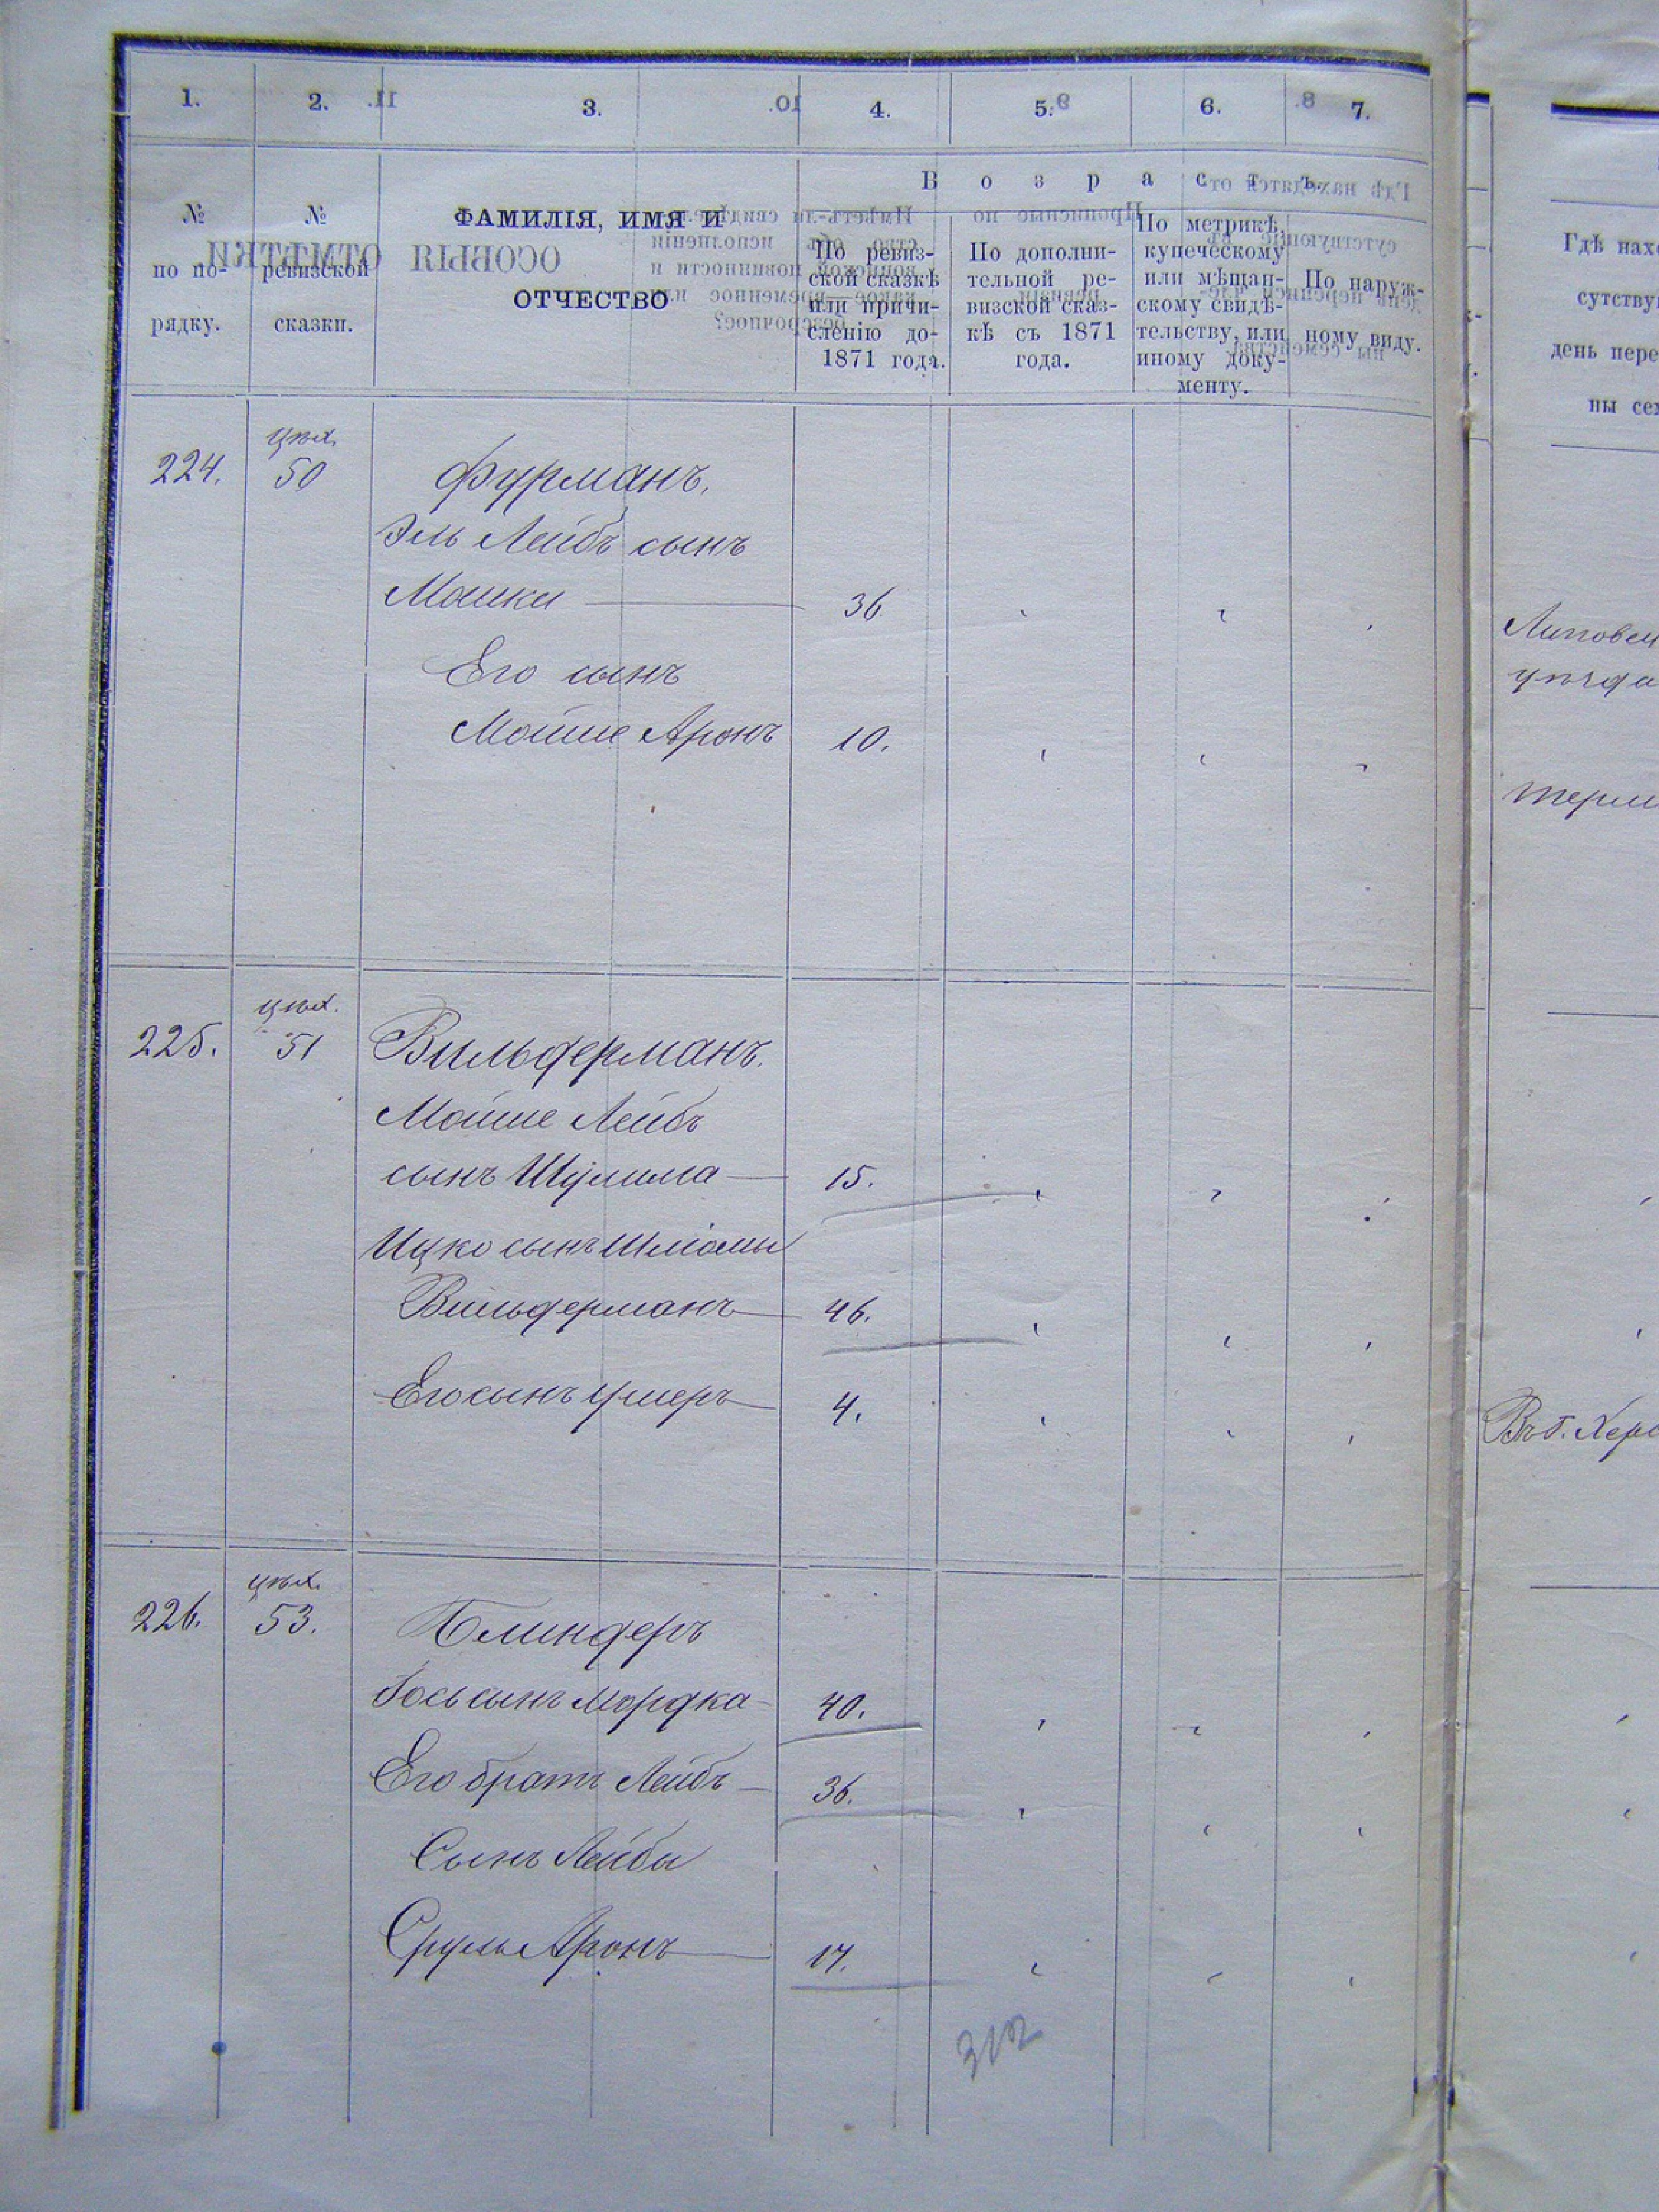 1. 2. 3. 4. 5. 6. 7.
В о з р а с т ъ.
№ по по- рядку.
№ ревизской сказки.
ФАМИЛІЯ, ИМЯ И
ОТЧЕСТВО
По ревиз-
ской сказкѣ
или причи-
сленію до-
1871 года.
По дополни-
тельной ре-
визской сказ-
кѣ съ 1871
года.
По метрикѣ,
купеческому
или мѣщан-
скому свидѣ-
тельству, или
иному доку-
менту.
По наруж-
ному виду.
цех.
224. 50 Фурманъ,
Эль Лейбъ сынъ
Мошки 36
Его сынъ
Мойше Аронъ 10.
цех.
225. 51 Вильдерманъ.
Мойше Лейбъ
сынъ Шулима 15.
Ицко сынъ Шліомы
Вильдерманъ 46.
Его сынъ Ушеръ 4.
цех.
226. 53. Блиндеръ
Іось сынъ Мордка 40.
Его братъ Лейбъ 36.
Сынъ Лейбы
Сруль Аронъ 17.
312
Гдѣ нахо
сутству
день пере
ны сем
Липовец
уѣзда
Въ г. Херс